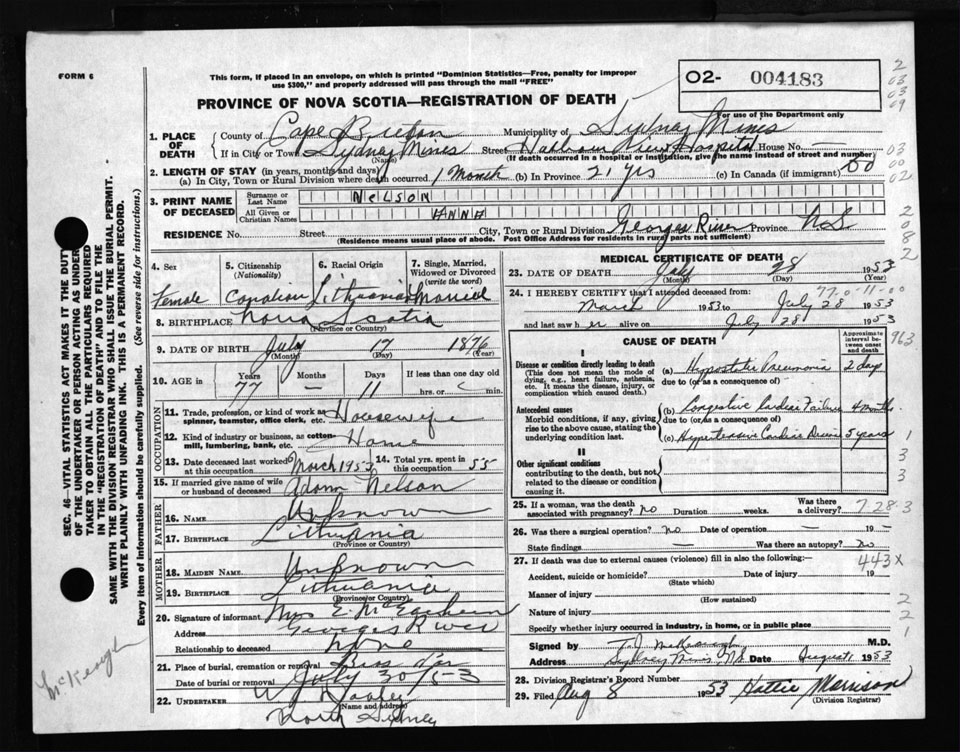 FORM 6
This form, if placed in an envelope, on which is printed "Dominion Statistics—Free, penalty for improper
use $300," and properly addressed will pass through the mail "FREE"
O2- 004183
For use of the Department only
PROVINCE OF NOVA SCOTIA—REGISTRATION OF DEATH
1. PLACE OF DEATH
County of Cape Breton Municipality of Sydney Mines
If in City or Town Sydney Mines Street Harbour View Hospital House No. —
(Name) (If death occurred in a hospital or institution, give the name instead of street and number)
2. LENGTH OF STAY (in years, months and days)
(a) In City, Town or Rural Division where death occurred. 1 Month (b) In Province 21 yrs (c) In Canada (if immigrant)
3. PRINT NAME OF DECEASED
Surname or Last Name NELSON
All Given or Christian Names ANNA
RESIDENCE No. Street City, Town or Rural Division Georges River Province N S
(Residence means usual place of abode. Post Office Address for residents in rural parts not sufficient)
4. Sex Female
5. Citizenship (Nationality) Canadian
6. Racial Origin Lithuanian
7. Single, Married, Widowed or Divorced (write the word) Married
8. BIRTHPLACE Nova Scotia
(Province or Country)
9. DATE OF BIRTH July 17 1876
(Month) (Day) (Year)
10. AGE in Years Months Days If less than one day old
77 — 11 hrs. or min.
OCCUPATION
11. Trade, profession, or kind of work as spinner, teamster, office clerk, etc. Housewife
12. Kind of industry or business, as cotton-mill, lumbering, bank, etc. Home
13. Date deceased last worked at this occupation March 1953
14. Total yrs. spent in this occupation 55
15. If married give name of wife or husband of deceased Adam Nelson
FATHER
16. NAME Unknown
17. BIRTHPLACE Lithuania
(Province or Country)
MOTHER
18. MAIDEN NAME Unknown
19. BIRTHPLACE Lithuania
(Province or Country)
20. Signature of informant Mrs E. McEachern
Address Georges River
Relationship to deceased none
21. Place of burial, cremation or removal
Date of burial or removal July 30/53
22. UNDERTAKER
(Name and address)
North Sydney
MEDICAL CERTIFICATE OF DEATH
23. DATE OF DEATH July 28 1953
(Month) (Day) (Year)
24. I HEREBY CERTIFY that I attended deceased from: 77-0-11-00
March 1953 to July 28 1953
and last saw her alive on July 28 1953
CAUSE OF DEATH
Approximate interval between onset and death
I
Disease or condition directly leading to death
(This does not mean the mode of dying, e.g., heart failure, asthenia, etc. It means the disease, injury, or complication which caused death.)
(a) Hypostatic Pneumonia 2 days
due to (or as a consequence of)
Antecedent causes
Morbid conditions, if any, giving rise to the above cause, stating the underlying condition last.
(b) Congestive Cardiac Failure 4 months
due to (or as a consequence of)
(c) Hypertensive Cardiac Disease 5 years
II
Other significant conditions
contributing to the death, but not related to the disease or condition causing it.
25. If a woman, was the death associated with pregnancy? no Duration weeks. Was there a delivery?
26. Was there a surgical operation? no Date of operation — 19 —
State findings — Was there an autopsy? no
27. If death was due to external causes (violence) fill in also the following:— 443X
Accident, suicide or homicide? Date of injury 19
(State which)
Manner of injury
(How sustained)
Nature of injury
Specify whether injury occurred in industry, in home, or in public place
Signed by T J McKeough M.D.
Address Sydney Mines N.S. Date August 1 1953
28. Division Registrar's Record Number
29. Filed Aug 8 1953 Hattie Morrison
(Division Registrar)
SEC. 46—VITAL STATISTICS ACT MAKES IT THE DUTY
OF THE UNDERTAKER OR PERSON ACTING AS UNDER-
TAKER TO OBTAIN ALL THE PARTICULARS REQUIRED
IN THE "REGISTRATION OF DEATH" AND TO FILE THE
SAME WITH THE DIVISION REGISTRAR WHO SHALL ISSUE THE BURIAL PERMIT.
WRITE PLAINLY WITH UNFADING INK. THIS IS A PERMANENT RECORD.
Every item of Information should be carefully supplied. (See reverse side for instructions.)
McKeough